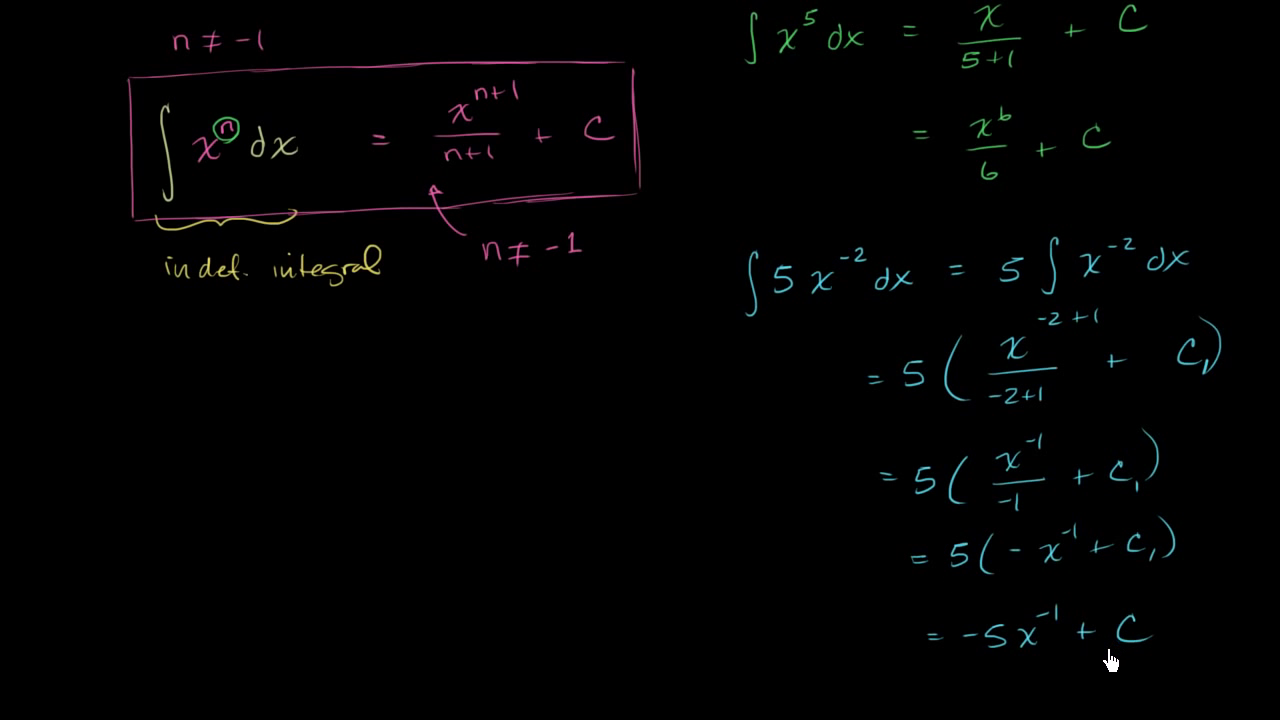 n ≠ -1
∫ xⁿ dx = xⁿ⁺¹/(n+1) + C
n ≠ -1
indef. integral
∫ x⁵ dx = x/(5+1) + C
= x⁶/6 + C
∫ 5x⁻² dx = 5 ∫ x⁻² dx
= 5 ( x⁻²⁺¹/(-2+1) + C₁)
= 5 ( x⁻¹/-1 + C₁)
= 5 ( - x⁻¹ + C₁)
= -5x⁻¹ + C